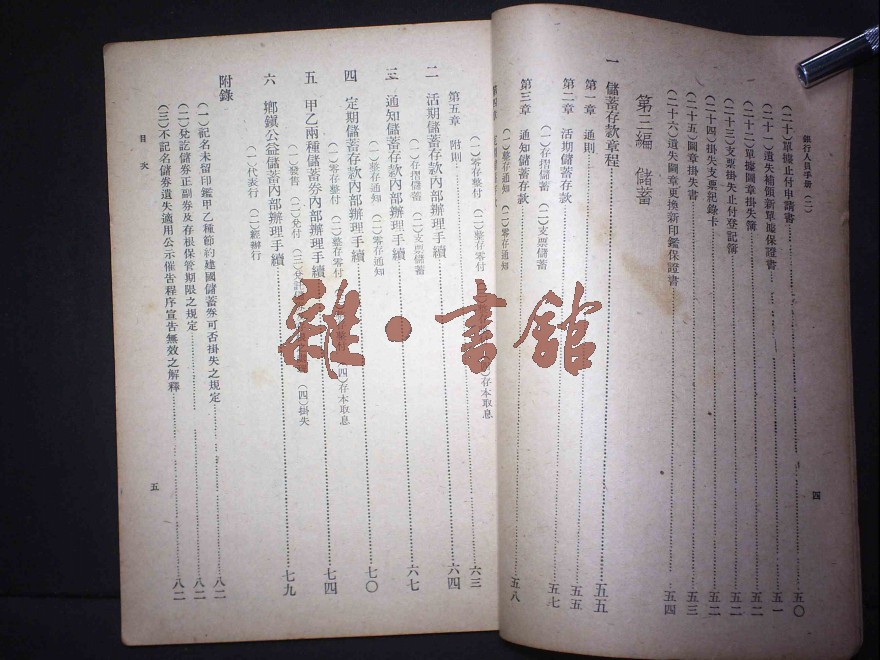 銀行人員手册（二）
（二十）單據止付申請書……五〇
（二十一）遺失補領新單據保證書……五一
（二十二）單據圖章掛失簿……五二
（二十三）支票掛失止付登記簿……五二
（二十四）掛失支票紀錄卡……五二
（二十五）圖章掛失書……五三
（二十六）遺失圖章更換新印鑑保證書……五四
第三編 儲蓄
一 儲蓄存款章程……五五
第一章 通則……五五
第二章 活期儲蓄存款……五七
（一）存摺儲蓄 （二）支票儲蓄
第三章 通知儲蓄存款……五八
（一）整存通知 （二）零存通知
四
（一）零存整付 （二）整存零付
（四）存本取息
六三
第五章 附則……六四
二 活期儲蓄存款內部辦理手續……六四
（一）存摺儲蓄 （二）支票儲蓄
三 通知儲蓄存款內部辦理手續……六七
（一）整存通知 （二）零存通知
四 定期儲蓄存款內部辦理手續……七〇
（一）零存整付 （二）整存零付
（四）存本取息
五 甲乙兩種儲蓄券內部辦理手續……七四
（一）發售 （二）兌付
（四）掛失
六 鄉鎮公益儲蓄內部辦理手續……七九
（一）代表行 （二）經辦行
附錄
（一）記名未留印鑑甲乙種節約建國儲蓄券可否掛失之規定……八二
（二）兌訖儲券正副券及存根保管期限之規定……八二
（三）不記名儲券遺失適用公示催告程序宣告無效之解釋……八二
目次
五
雜·書館